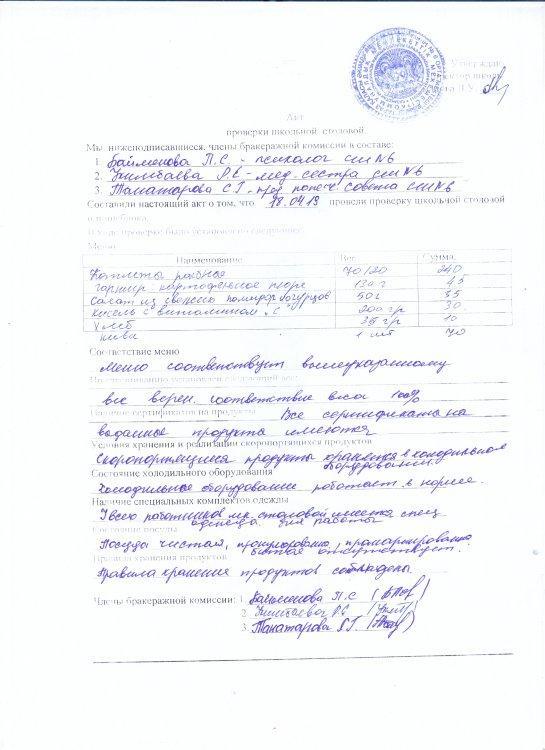 Утверждаю
Акт
проверки школьной столовой
Мы нижеподписавшиеся, члены бракеражной комиссии в составе:
1. Байменова П.С. - психолог сш №6
2. Укимбаева Р.Е - мед. сестра сш №6
3. Танатарова С.Г. - пред попеч. совета СШ №6
Составили настоящий акт о том, что 18.04.19 провели проверку школьной столовой
и пищеблока.
В ходе проверки было установлено следующее:
Меню
Наименование Вес Сумма
Котлеты рыбные 70/20 240
гарнир картофельное пюре 130 г 45
Салат из свежих помидор огурцов 50 г 35
Кисель с витамином "С" 200 гр 30
Хлеб 35 гр 10
киви 1 шт 70
Соответствие меню
Меню соответствует вышеуказанному
все верен. соответствие веса 100%
Наличие сертификатов на продукты Все сертификаты на
выданные продукты имеются
Условия хранения и реализации скоропортящихся продуктов
Скоропортящиеся продукты хранятся в холодильном
оборудовании.
Состояние холодильного оборудования
Холодильное оборудование работает в норме.
Наличие специальных комплектов одежды
У всех работников шк. столовой имеется спец.
одежда для работы
Состояние посуды
Посуда чистая, промаркирована
битая отсутствует.
Правила хранения продуктов
Правила хранения продуктов соблюдены
Члены бракеражной комиссии: 1. Байменова П.С
2. Укимбаева Р.Е
3. Танатарова С.Г.